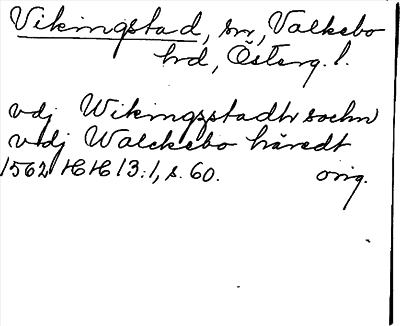 Vikingstad, sn, Valkebo
hd, Österg. l.
vdj Wikingzstadhr sochn
vtdj Walckebo häredt
1562 HH 13:1, s. 60. orig.